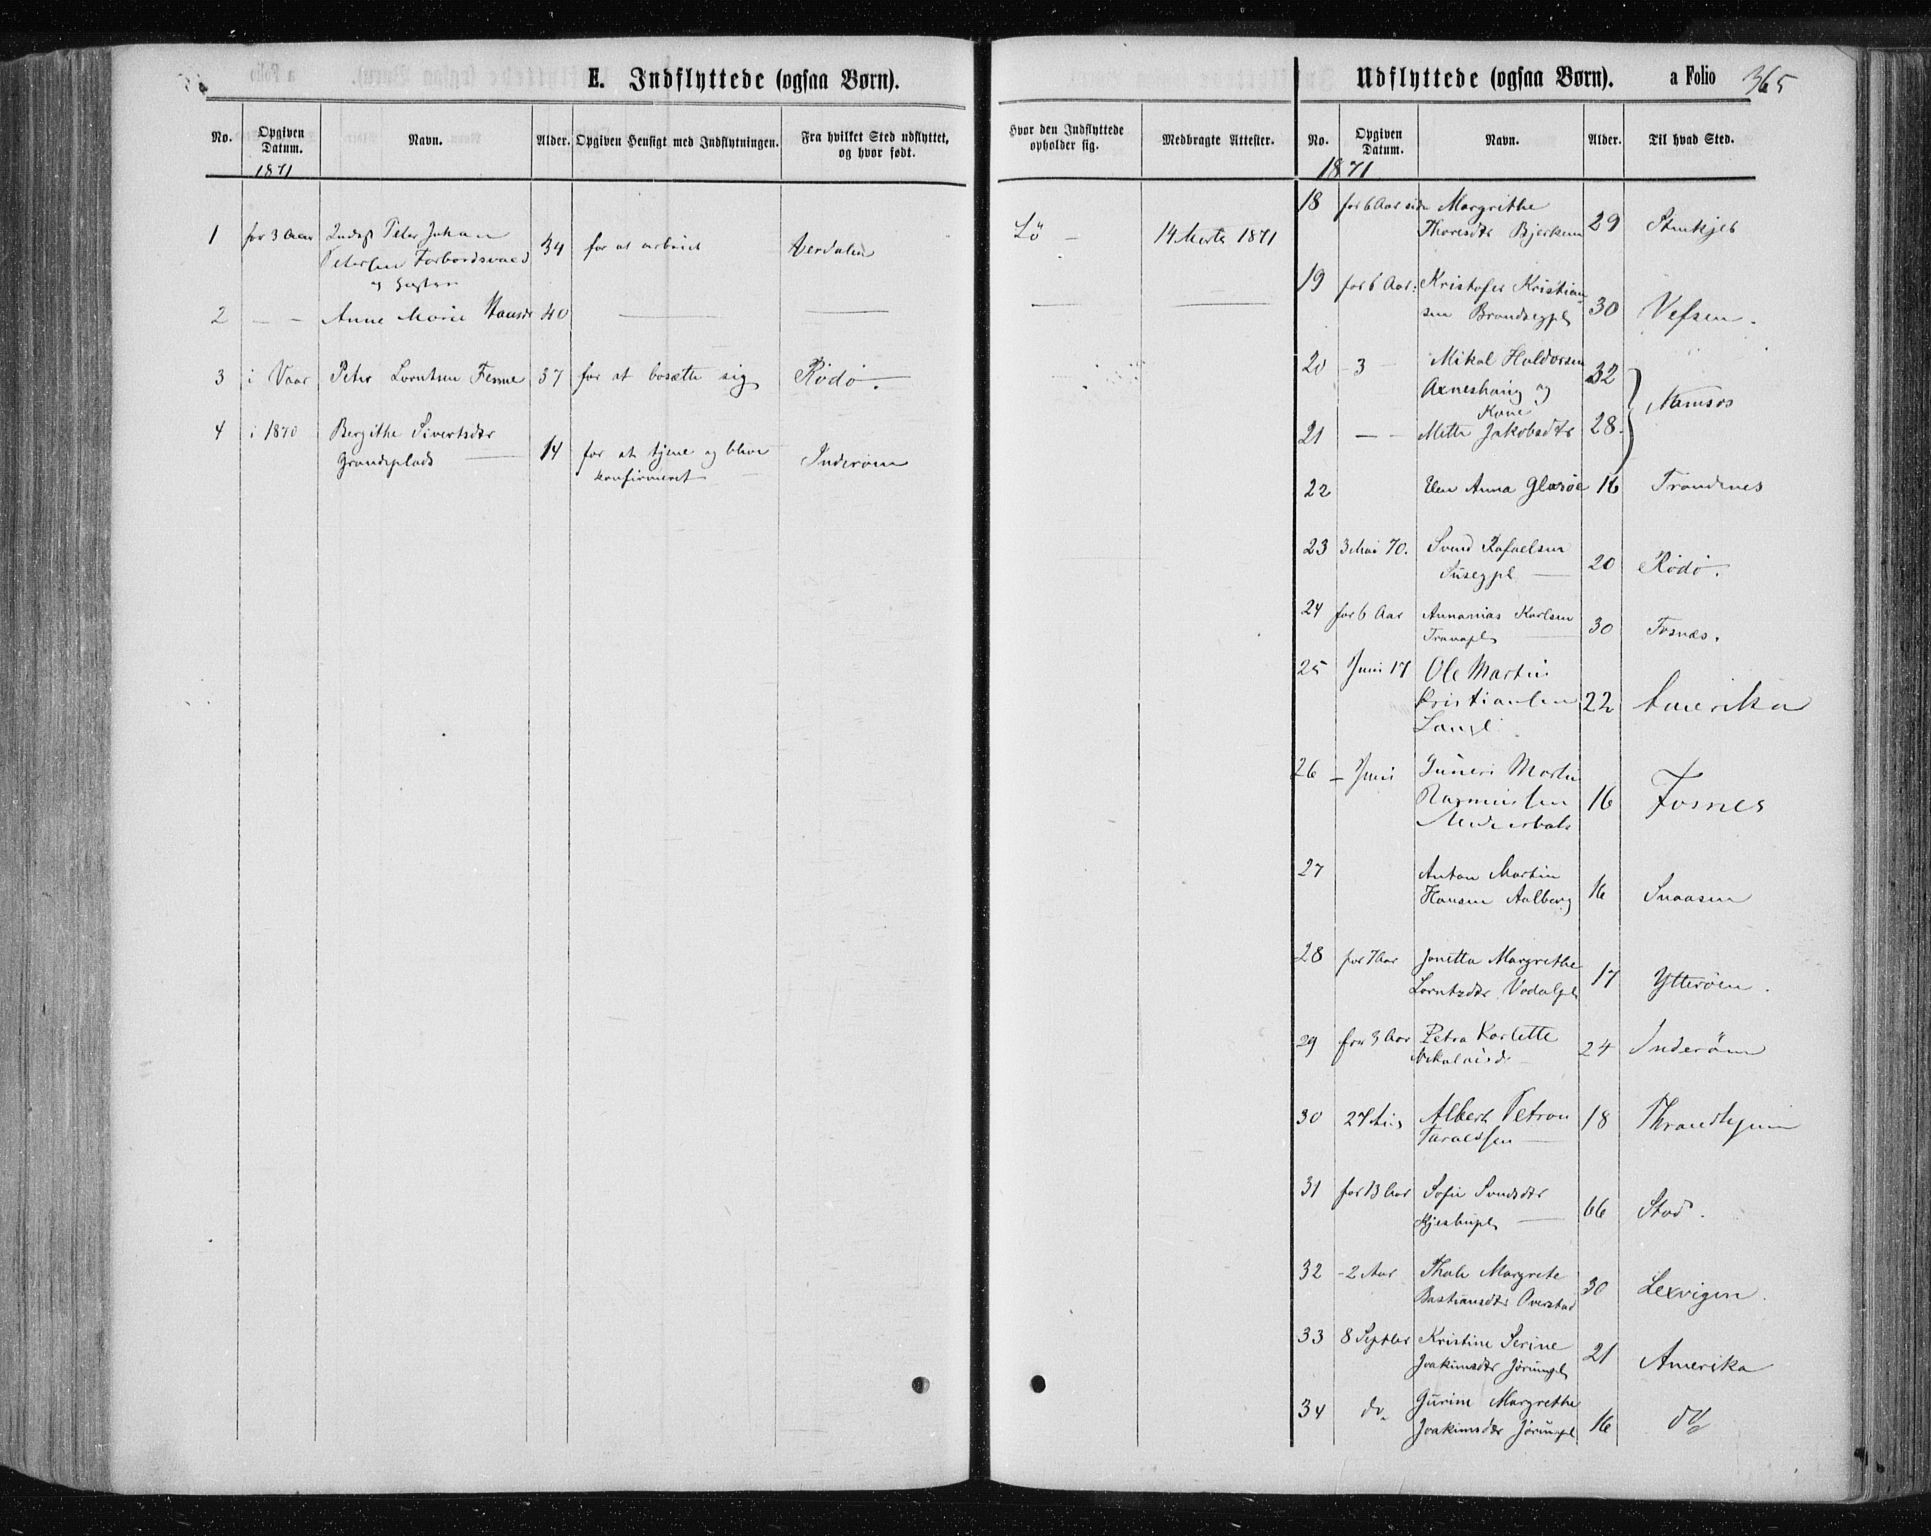 E. Indflyttede (ogsaa Børn).
No.
Opgiven Datum.
Navn.
Alder.
Opgiven Hensigt med Indflytningen.
Fra hvilket Sted udflyttet, og hvor født.
1871
1 for 3 Aar Peter Johan
Petersen Forbordsvald 34 for at arbeid Verdalen
2 — — Anne Marie Hansdr 40
3 i Vaar Peter Lorntsen Ferme 37 for at bosætte sig Rödö.
4 i 1870 Bergithe Sivertsdtr
Grandeplads 14 for at tjene og blive
konfirmeret Inderøen
Hvor den Indflyttede opholder sig.
Medbragte Attester.
Lö — 14 Marts 1871
Udflyttede (ogsaa Børn).
a Folio 365
No.
Opgiven Datum.
Navn.
Alder.
Til hvad Sted.
1871
18 for 6 Aar siden Margrithe
Thoresdtr Bjerkem 29 Stenkjer
19 for 6 Aar: Kristofer Kristian
sen Brandsegpl 30 Vefsen.
20 - 3 - Mikal Haldorsen 32
Axneshaug og
Kone Namsos
21 — - Mette Jakobsdtr 28.
22 Elen Anna Glaröe 16 Trondenes
23 3 Mai 70. Svend Rafaelsen
Susegpl 20 Rödö.
24 for 6 Aar Annanias Karlsen
Tranapl 30 Fosnæs.
25 Juni 17 Ole Martin
Cristiansen 22 Amerika
Langli
26 – Juni Martin
Rasmussen 16 Fosnes
27 Anton Martin
Hansen Aalberg 16 Snaasen
28 for 7 Aar Jonetta Margrethe
Lorntsdtr Vadalpl 17 Ytterøen.
29 for 3 Aar Petra Karlette
Nikolaisdr 24 Inderöen
30 24 Aug Albert Petron 18 Thrandhjem
Taraldsen
31 for 13 Aar Sofie Svendsdtr
66 Stod.
32 - 2 Aar Thale Margrete
Bastiansdtr Overstad 30 Lexvigen.
33 8 Septbr Kristine Serine
Joakimsdtr Jörumpl 21 Amerika
34 do. Gurine Margrethe
Joakimsdtr Jörumpl 16 do